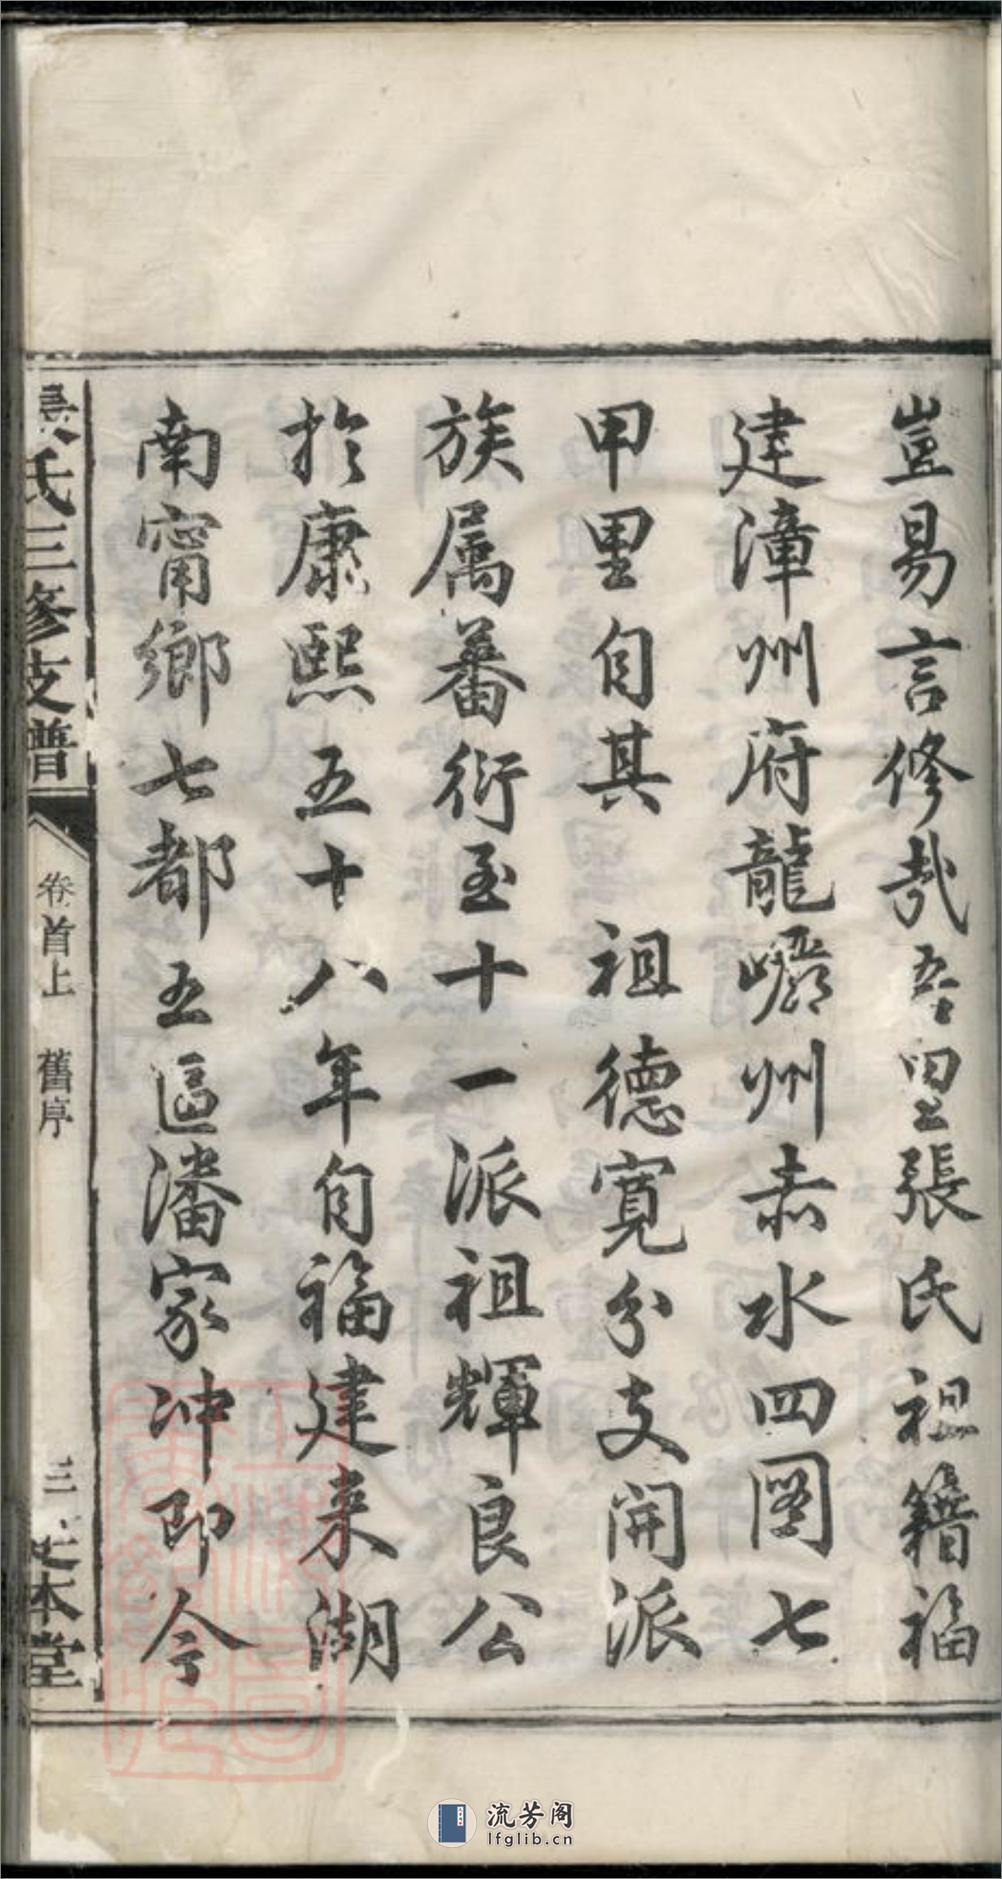 豈易言修哉吾里張氏祖籍福
建漳州府龍巗州赤水四圖七
甲里自其　祖德寬分支開派
族属蕃衍至十一派祖輝良公
於康熙五十八年自福建来湖
南甯鄉七都五區潘家冲即今
張氏三修支譜
卷首上　舊序
三
本堂
流芳阁
lfglib.cn